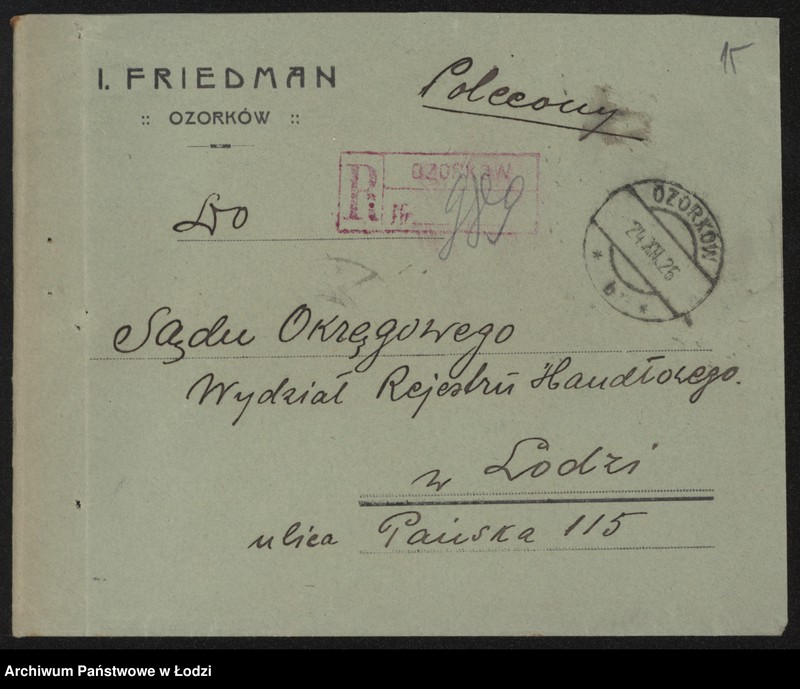 15
I. FRIEDMAN
:: OZORKÓW ::
Polecony
R OZORKÓW
Nr. 989
OZORKÓW
24.XII.26
* b * 
Do
Sądu Okręgowego
Wydział Rejestru Handlowego.
w Lodzi
ulica Pańska 115
Archiwum Państwowe w Łodzi